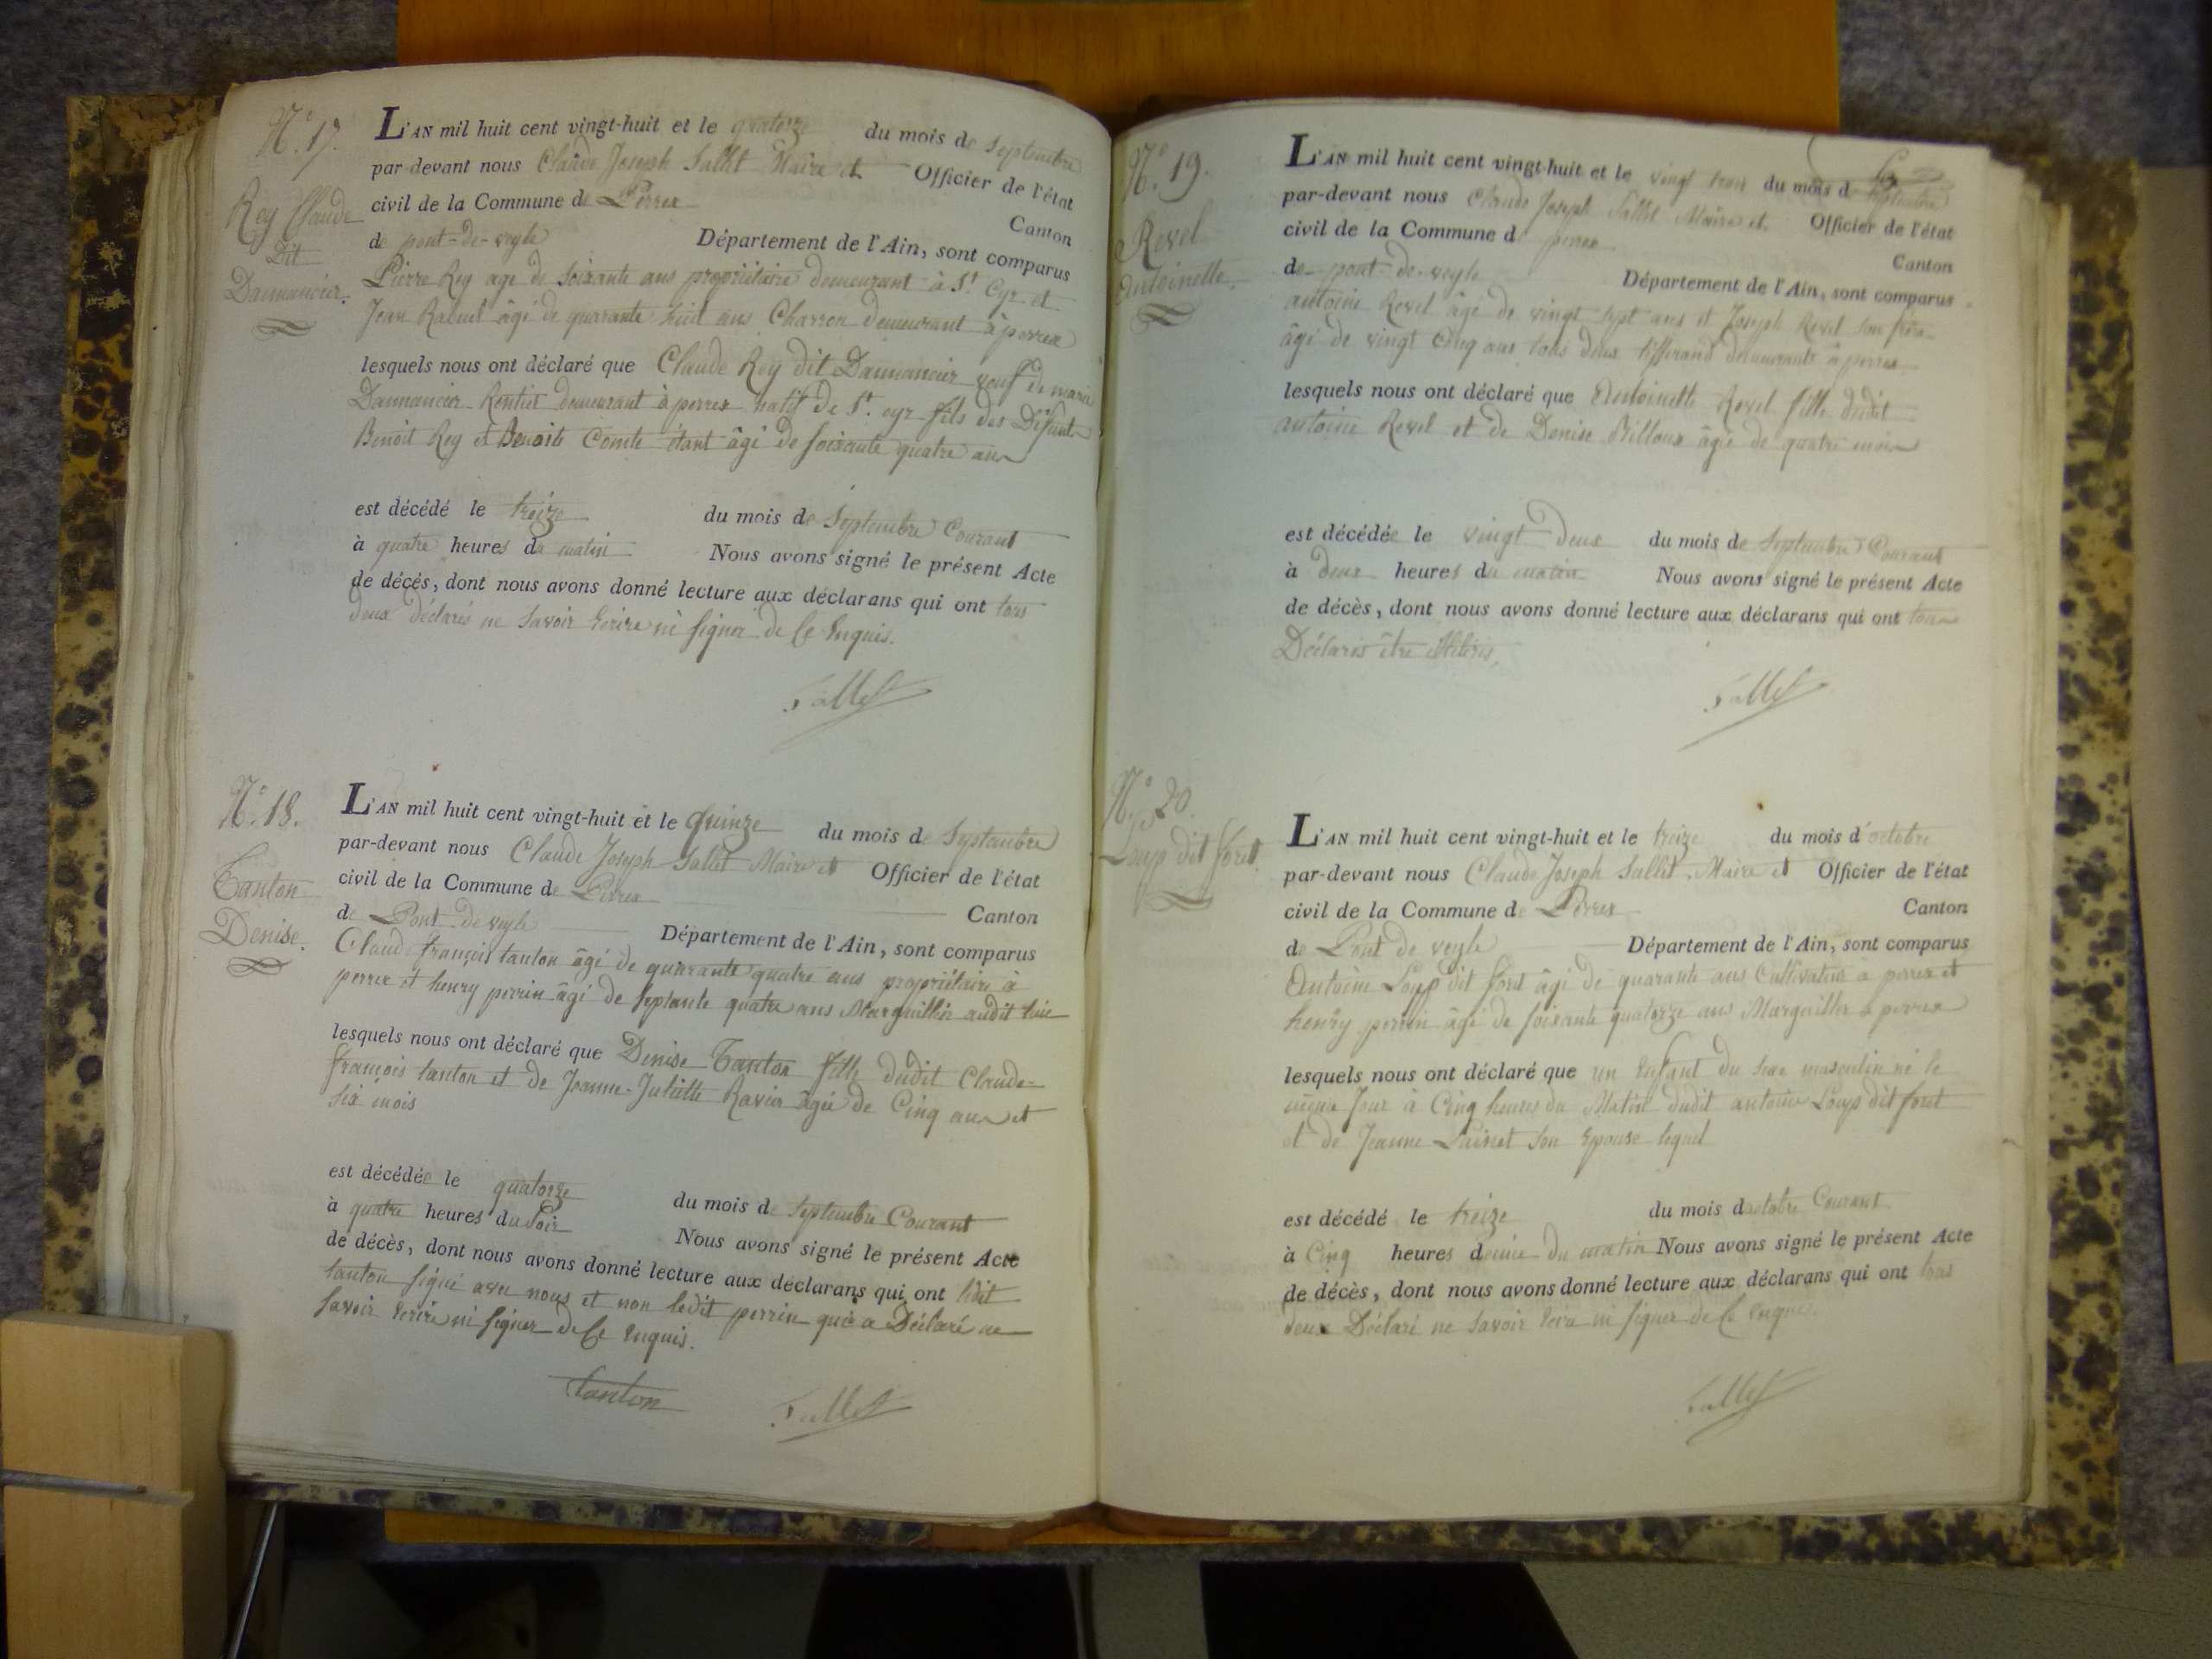 N.° 17.
Rey Claude
Dit
Damancier.
L'AN mil huit cent vingt-huit et le quatorze du mois de Septembre
par devant nous Claude Joseph Sallet Maire et Officier de l'état
civil de la Commune de Perrex
Canton
de pont-de-veyle Département de l'Ain, sont comparus
Pierre Rey age de soixante ans propriétaire demeurant à St Cyr et
Jean Ravuel âgé de quarante huit ans Charron demeurant à perrex
lesquels nous ont déclaré que Claude Rey dit Damancier veuf de marie
Damancier Rentier demeurant à perrex natif de St. cyr fils des Défunts
Benoit Rey et Benoite Comte étant âgé de soixante quatre ans
est décédé le treize du mois de Septembre Courant
à quatre heures du matin Nous avons signé le présent Acte
de décès, dont nous avons donné lecture aux déclarans qui ont tous
deux déclarés ne Savoir Ecrire ni signer de Ce Enquis.
Sallet
N.° 18.
Tanton
Denise.
L'AN mil huit cent vingt-huit et le quinze du mois de Septembre
par-devant nous Claude Joseph Sallet Maire et Officier de l'état
civil de la Commune de Perrex
Canton
de Pont-de veyle Département de l'Ain, sont comparus
Claude françois tanton âgé de quarante quatre ans propriétaire à
perrex et henry perrin âgé de septante quatre ans Marguillier audit lieu
lesquels nous ont déclaré que Denise Tanton fille dudit Claude-
françois tanton et de Jeanne-Juliette Ravier âgée de Cinq ans et
six mois
est décédée le quatorze du mois de Septembre Courant
à quatre heures du Soir Nous avons signé le présent Acte
de décès, dont nous avons donné lecture aux déclarans qui ont ledit
tanton signé avec nous et non ledit perrin qui a Déclaré ne
savoir Ecrire ni signer de Ce Enquis.
tanton Sallet
N.° 19.
Revel
Antoinette.
L'AN mil huit cent vingt-huit et le vingt trois du mois de Septembre
par-devant nous Claude Joseph Sallet Maire et Officier de l'état
civil de la Commune de perrex
Canton
de pont-de-veyle Département de l'Ain, sont comparus
antoine Revel âgé de vingt sept ans et Joseph Revel son frère
âgé de vingt Cinq ans tous deux tisserand demeurants à perrex
lesquels nous ont déclaré que Antoinette Revel fille dudit
antoine Revel et de Denise Billoux âgée de quatre mois
est décédée le vingt Deux du mois de Septembre Courant
à deux heures du matin Nous avons signé le présent Acte
de décès, dont nous avons donné lecture aux déclarans qui ont tous
Déclarés être illitérés.
Sallet
N.° 20.
Loup dit foret
L'AN mil huit cent vingt-huit et le treize du mois d'octobre
par-devant nous Claude Joseph Sallet, Maire et Officier de l'état
civil de la Commune de Perrex
Canton
de Pont de veyle Département de l'Ain, sont comparus
Antoine Loup dit foret âgé de quarante ans Cultivateur à perrex et
henry perrin âgé de soixante quatorze ans Marguillier à perrex
lesquels nous ont déclaré que un Enfant du sexe masculin né le
même Jour à Cinq heures du Matin dudit antoine Loup dit foret
et de Jeanne son Epouse lequel
est décédé le treize du mois d'octobre Courant
à Cinq heures demie du matin Nous avons signé le présent Acte
de décès, dont nous avons donné lecture aux déclarans qui ont tous
deux Déclaré ne savoir Ecrire ni signer de Ce Enquis.
Sallet